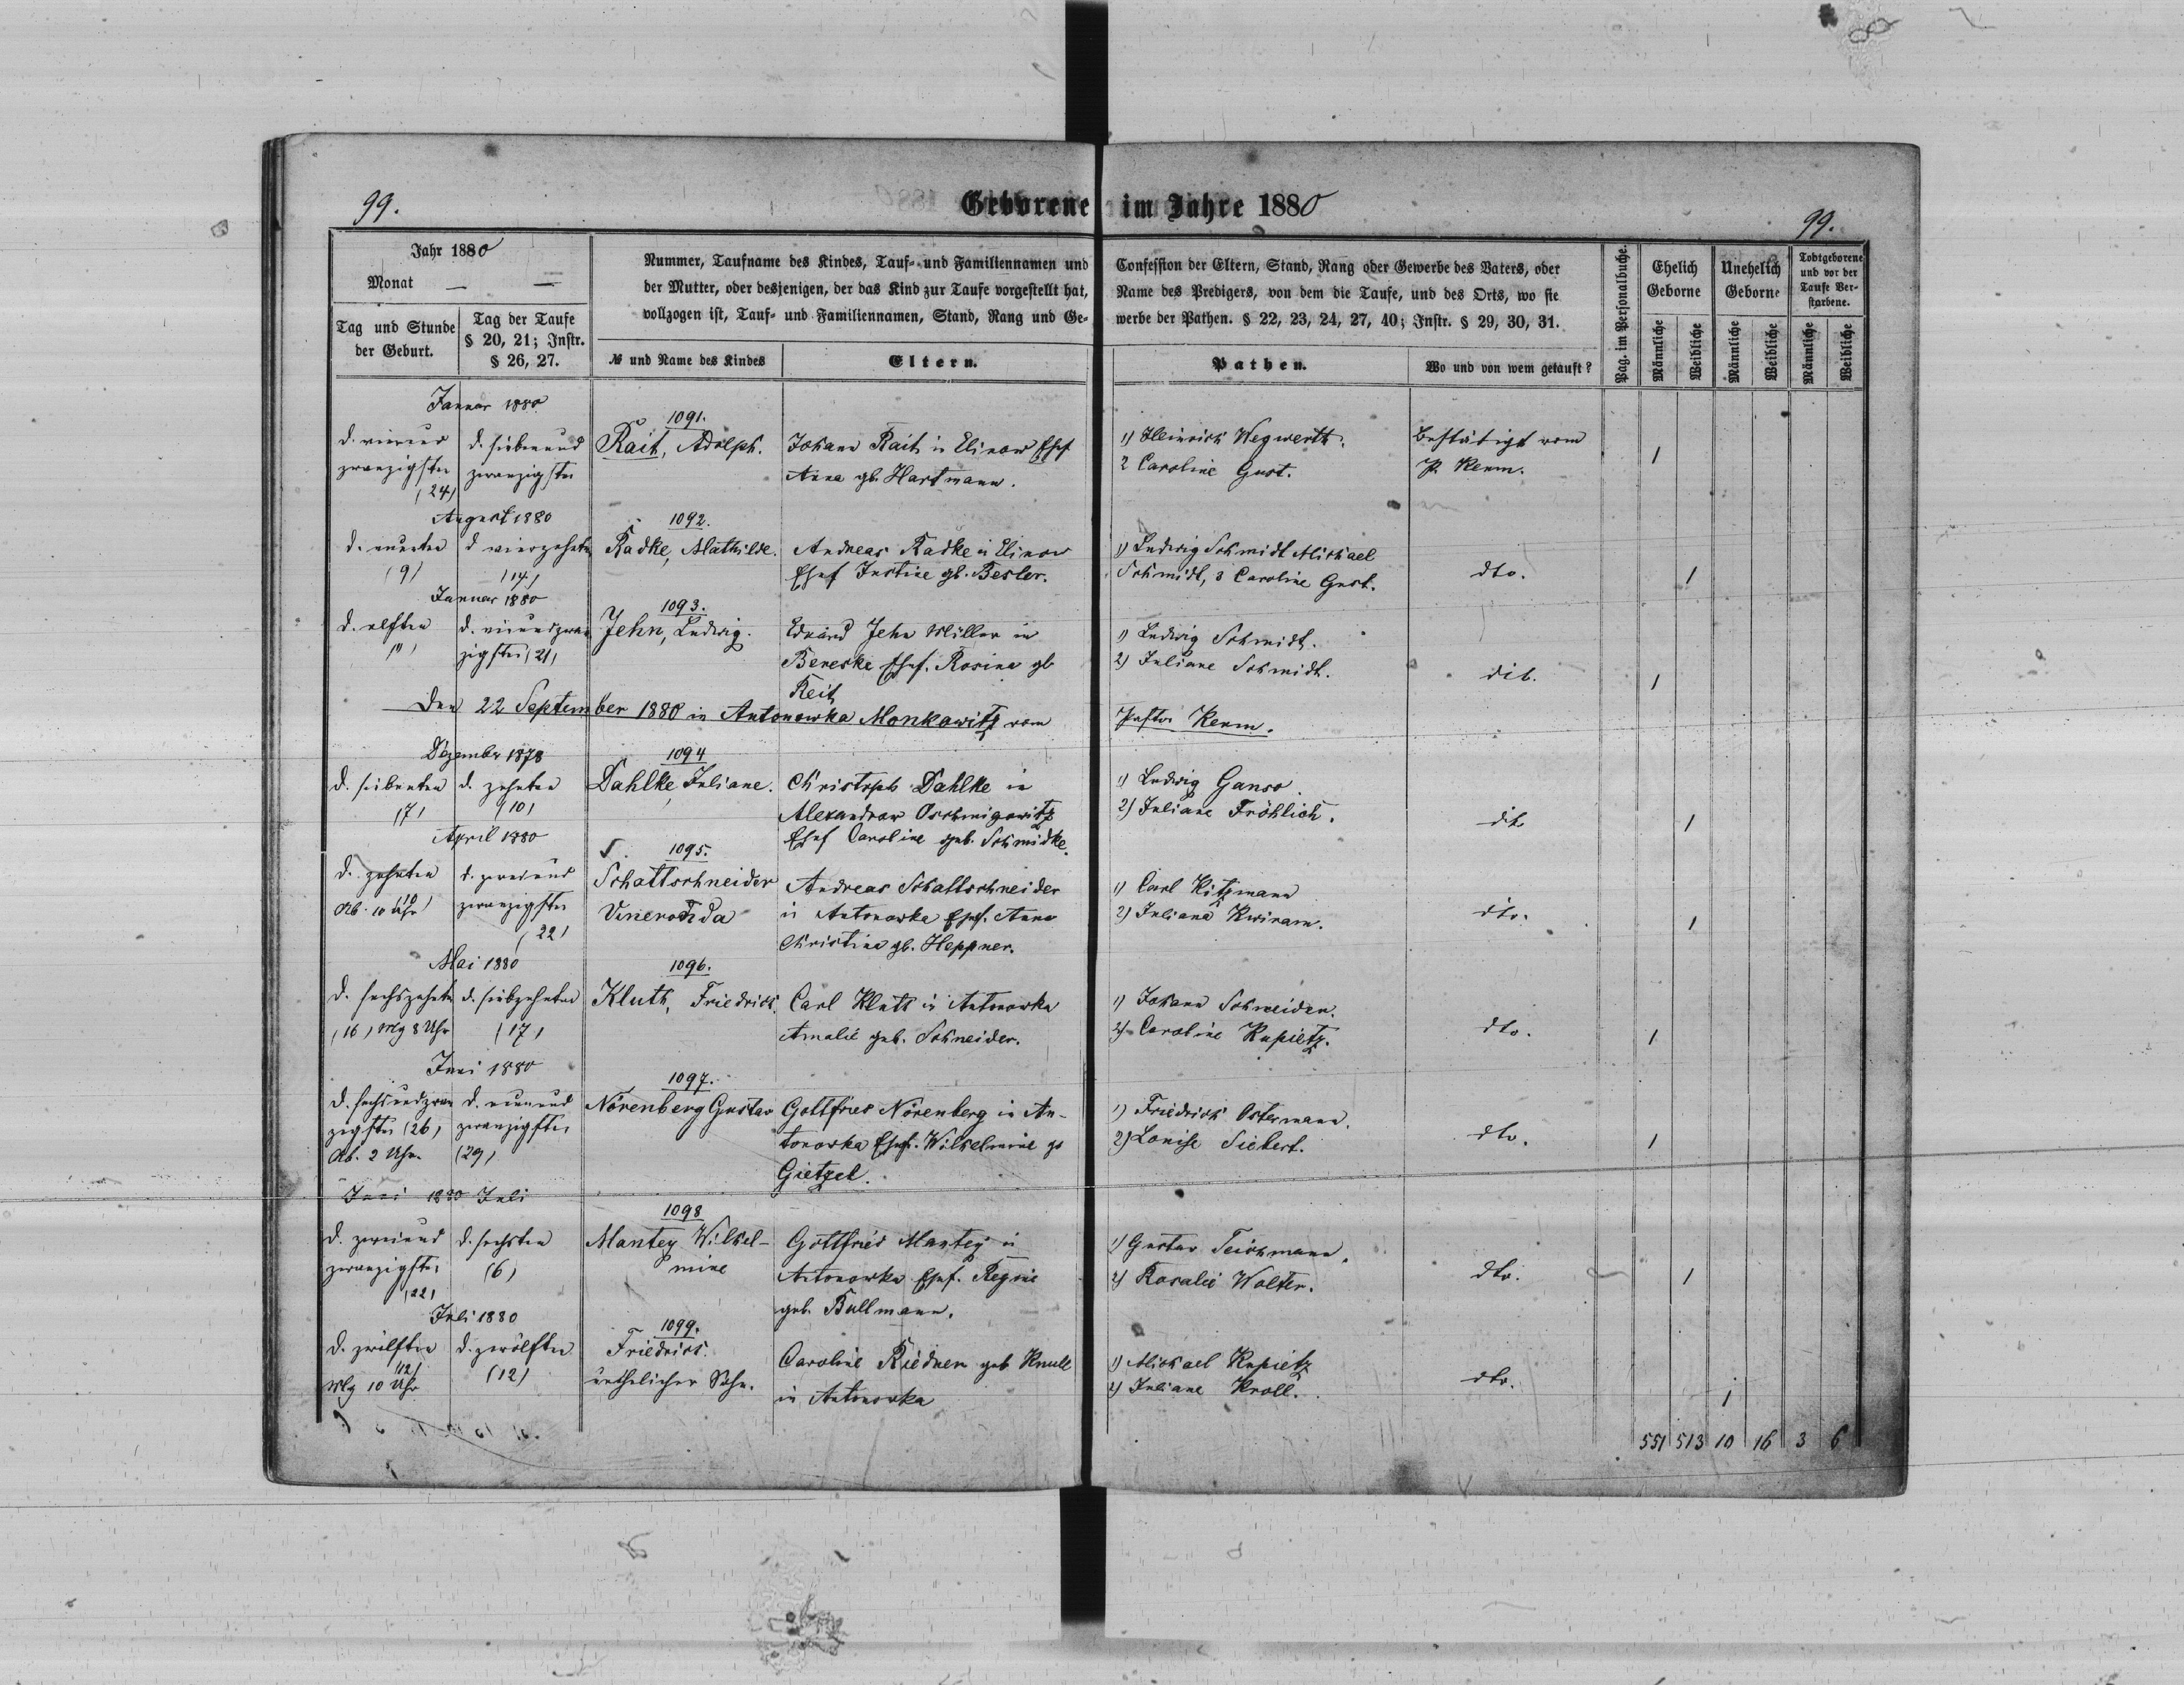 99.
Geborene im Jahre 1880
99.
Jahr 1880
Monat — —
Tag und Stunde der Geburt.
Tag der Taufe § 20, 21; Instr. § 26, 27.
Nummer, Taufname des Kindes, Tauf- und Familiennamen und
der Mutter, oder desjenigen, der das Kind zur Taufe vorgestellt hat,
vollzogen ist, Tauf- und Familiennamen, Stand, Rang und Ge-
№ und Name des Kindes
Eltern.
Confession der Eltern, Stand, Rang oder Gewerbe des Vaters, oder
Name des Predigers, von dem die Taufe, und des Orts, wo sie
werbe der Pathen. § 22, 23, 24, 27, 40; Instr. § 29, 30, 31.
Pathen.
Wo und von wem getauft?
Pag. im Personalbuche.
Ehelich Geborne
Unehelich Geborne
Todtgeborene und vor der Taufe Verstorbene.
Männliche
Weibliche
Männliche
Weibliche
Männliche
Weibliche
Januar 1880
1091.
d. vierund
zwanzigsten
(24)
d. siebenund
zwanzigsten
Rait, Adolph.
Johann Rait in Elinow Ehef
Anna gb. Hartmann.
1) Heinrich Wegwerth.
2 Caroline Gust.
bestätigt vom
P. Kerm.
1
August 1880
1092.
d. neunten
(9)
d vierzehnten
(14)
Radke, Mathilde.
Andreas Radke in Elinow
Ehef Justine gb. Besler.
1) Ludwig Schmidt Michael
Schmidt, 3 Caroline Gust.
dto.
1
Januar 1880
1093.
d. elften
d. einundzwan
zigsten (21)
Jehn, Ludwig.
Eduard Jehn Müller in
Bereske Ehef. Rosina gb
Reit
1) Ludwig Schmidt.
2) Juliane Schmidt.
dit.
1
Den 22 September 1880 in Antonowka Monkowitz vom Pastor Kerm.
Dezember 1878
1094
d. siebenten
(7)
d. zehnten
(10)
Dahlke Juliane.
Christoph Dahlke in
Alexandrow
Ehef Caroline geb. Schmidke.
1) Ludwig Ganso.
2) Juliane Fröhlich.
dit
1
April 1880
1095.
d. zehnten
(10)
Ab. 10 Uhr
d. zweiund
zwanzigsten
(22)
Schattschneider
Andreas Schattschneider
in Antonowka Ehef. Anna
Christina gb. Heppner.
1) Carl Kitzmann
2) Juliana Kwiram.
dto.
1
Mai 1880
1096.
d. sechszehnten
(16) Mg 8 Uhr
d. siebzehnten
(17)
Kluth, Friedrich.
Carl Kluth in Antonowka
Amalie geb. Schneider.
1) Johann Schneider.
2) Caroline Kupietz.
dto.
1
Juni 1880
1097.
d. sechsundzwan
zigsten (26)
Ab. 2 Uhr.
d. neunund
zwanzigsten
(29)
Nörenberg Gustav
Gottfried Nörenberg in An-
tonowka Ehef. Wilhelmine gb
Gietzel.
1) Friedrich Ostermann.
2) Louise Siebert.
dto.
1
Juni 1880 Juli
1098
d. zweiund
zwanzigsten
(22)
d. sechsten
(6)
Mantey Wilhel-
mine
Gottfried Mantey in
Antonowka Ehef. Regine
geb. Bullmann.
1) Gustav Teichmann.
2) Rosalie Wolter.
dto.
1
Juli 1880
1099.
d. zwölften
(12)
Mg 10 Uhr
d. zwölften
(12)
Friedrich.
unehelicher Sohn.
Caroline Riedner geb Knull
in Antonowka
1) Michael Kupietz
2) Juliane Kroll.
dto.
1
551 513 10 16 3 6